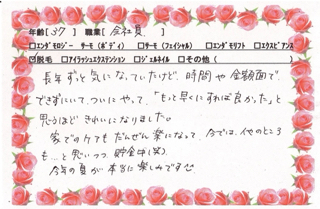 年齢[37] 職業[会社員]
□エンダモロジー サーモ(ボディ) □サーモ(フェイシャル) □エンダモリフト □エクスピアンス
☑脱毛 □アイラッシュエクステンション □ジェルネイル □その他( )
長年ずっと気になっていたけど、時間や金額面で
できずにいて、ついにやって、「もっと早くにすれば良かった」と
思うほどきれいになりました。
家でのケアもだんぜん楽になって、今では、他のところ
も…と思いつつ、貯金中(笑)
今年の夏が本当に楽しみです